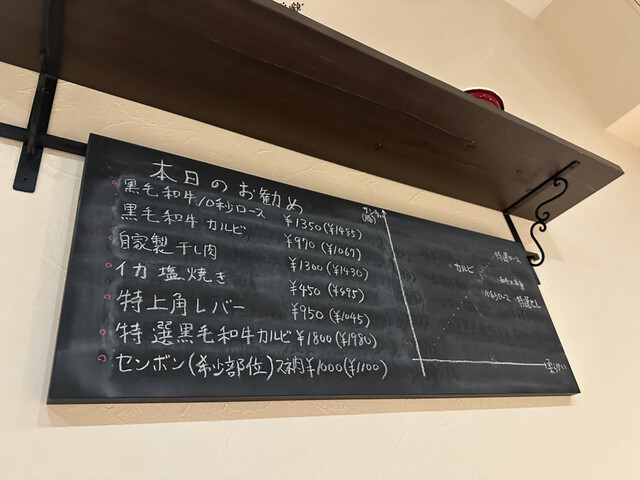 本日のお勧め
黒毛和牛10秒ロース ¥1350(¥1485)
黒毛和牛カルビ ¥970(¥1067)
自家製干し肉 ¥1300(¥1430)
イカ塩焼き ¥450(¥495)
特上角レバー ¥950(¥1045)
特選黒毛和牛カルビ ¥1800(¥1980)
センボン(希少部位)スネ肉 ¥1000(¥1100)
特選ロース
カルビ
10秒ロース